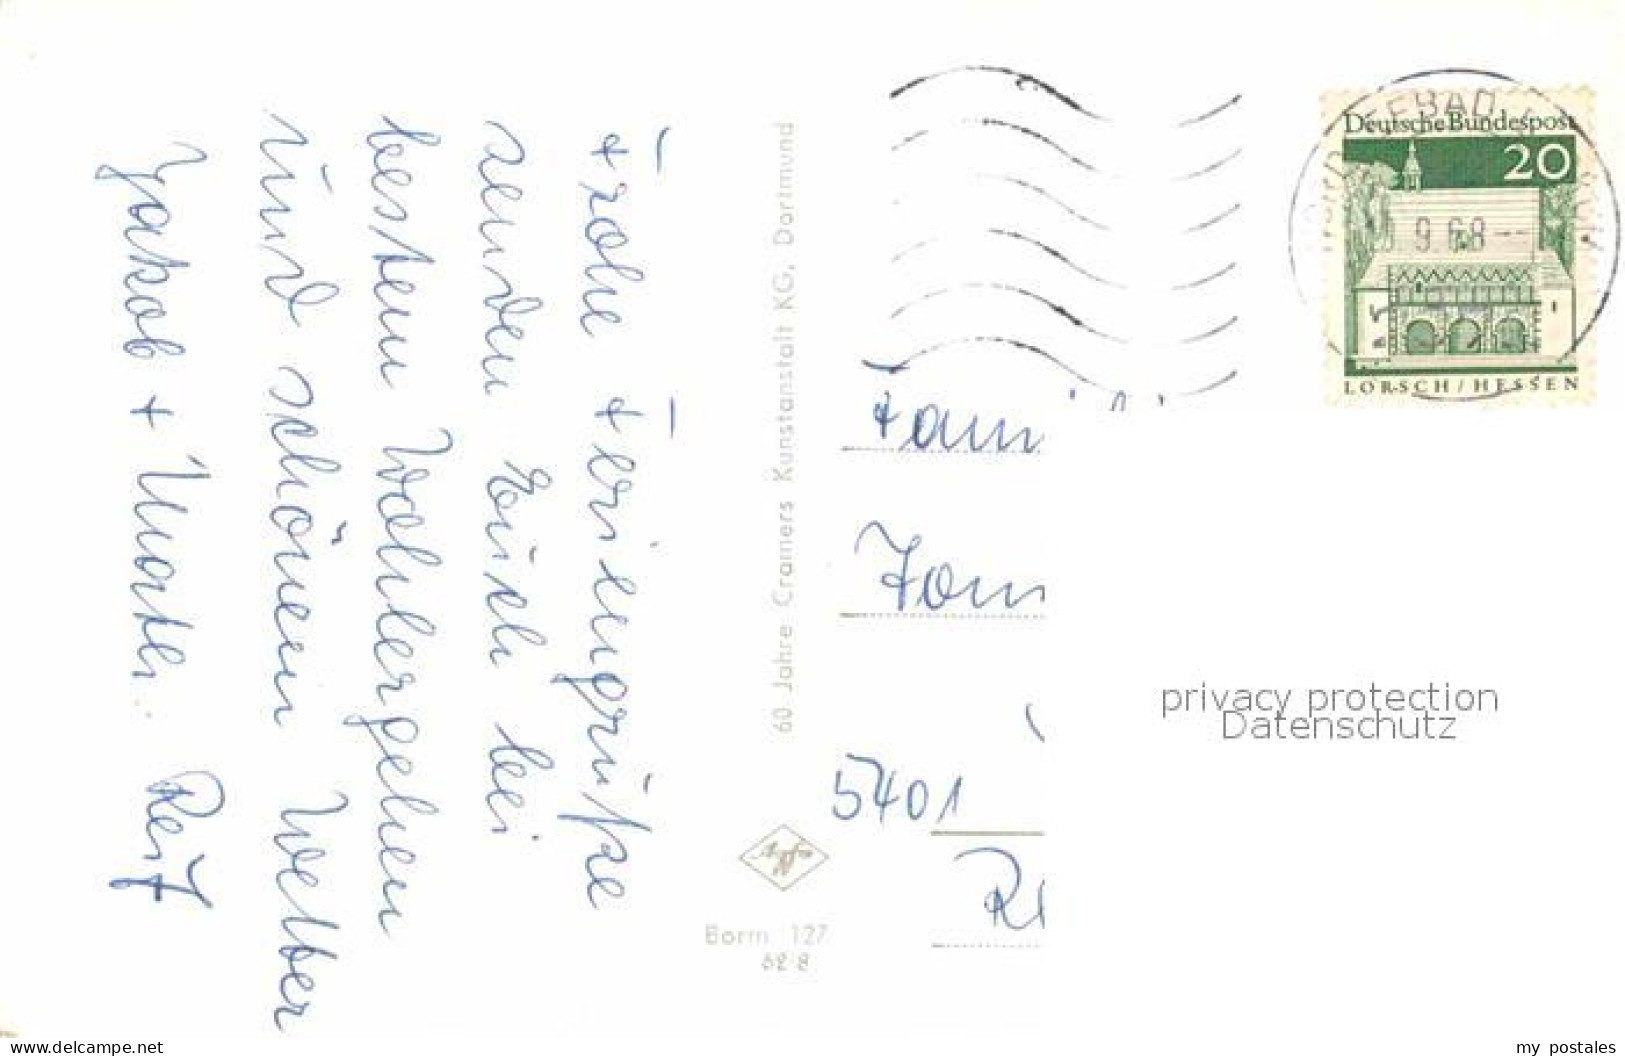 Frohe Feriengrüße
senden Euch bei
bestem Wohlergehen
und schönem Wetter
Jakob +
Reif
60 Jahre Cramers Kunstanstalt KG, Dortmund
Borm 127
62 8
Deutsche Bundespost
20
9.68
LORSCH/HESSEN
Fam
5401
privacy protection
Datenschutz
www.delcampe.net
my_postales